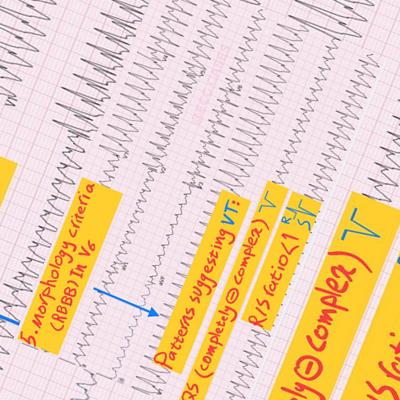 5. Morphology criteria
(RBBB) In V6
Patterns suggesting VT:
QS (completely ⊖ complex)
R/S ratio < 1
R
S
ly ⊖ complex)